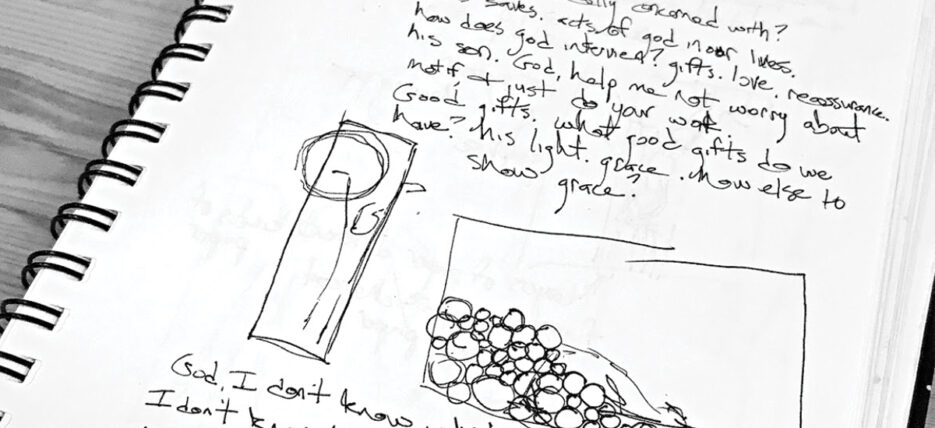 concerned with?
saves. acts of god in our lives.
how does god intervene? gifts. love. reassurance.
his son. God, help me not worry about
motif & just do your work.
Good gifts. what good gifts do we
have? his light. grace. How else to
show grace?
God, I don't know
I don't know